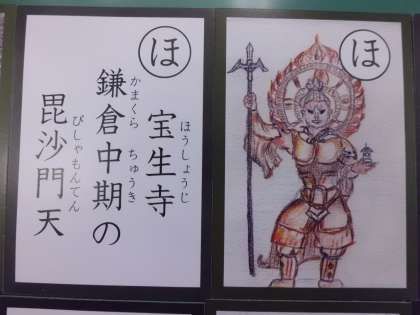 ほ
宝生寺
ほうしょうじ
鎌倉中期の
かまくら ちゅうき
毘沙門天
びしゃもんてん
ほ